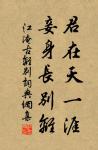 君在天一涯
妾身長別離
江淹古離別詞典網集